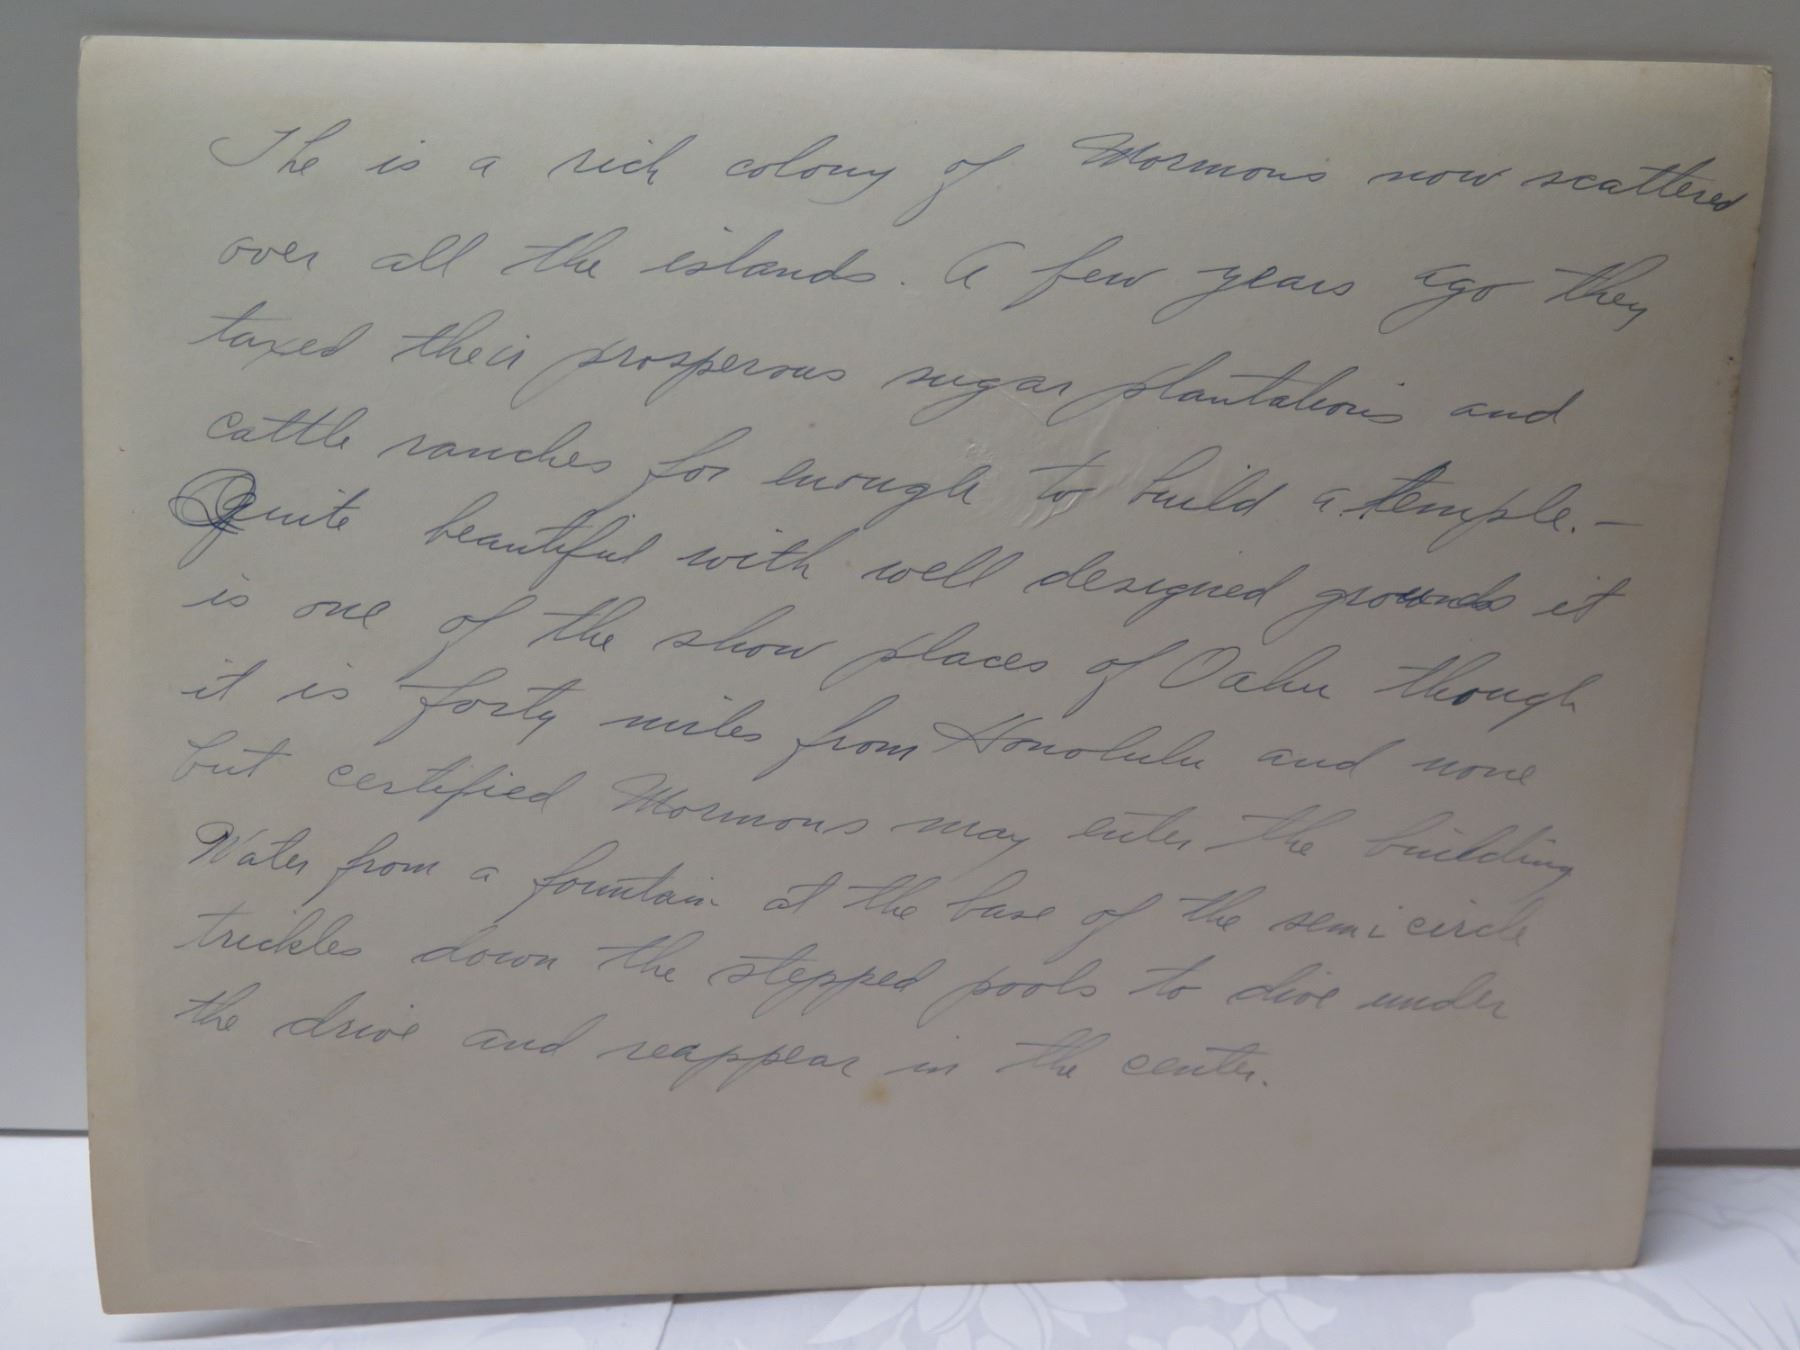 The is a rich colony of Mormons now scattered
over all the islands. A few years ago they
taxed their prosperous sugar plantations and
cattle ranches for enough to build a temple. —
Quite beautiful with well designed grounds it
is one of the show places of Oahu though
it is forty miles from Honolulu and none
but certified Mormons may enter the building
Water from a fountain at the base of the semi circle
trickles down the stepped pools to dive under
the drive and reappear in the center.